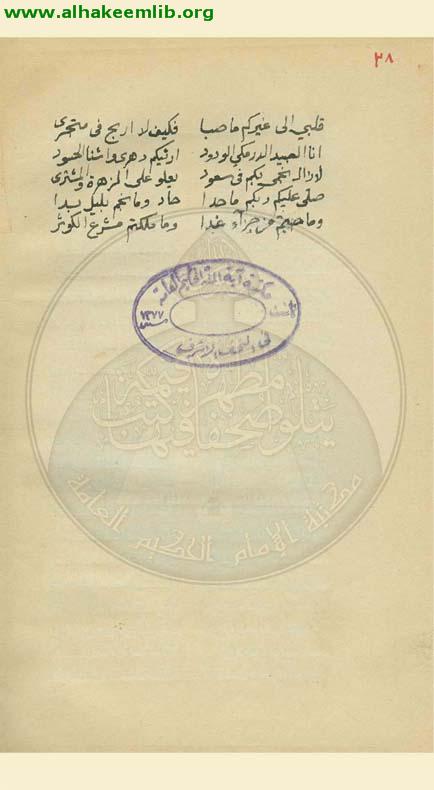 www.alhakeemlib.org
٣٨
قلبي الى غيركم ما صبا فكيف لا اربح في متجرى
انا العبيد الدرمكي الودود ارثيكم دهرى واشنا الحسود
لا زال نجمي بكم في سعود يعلو على الزهرة والمشترى
صلى عليكم ربكم ما حدا حاد وما نجم بليل بدا
وما حبيتم جزآء غدا وما ملكتم مشرع الكوثر
مكتبة آية الله الحكيم العامة
١٣٧٧
في النجف الاشرف
يتلو صحفا مطهرة فيها كتب قيمة
مكتبة الإمام الحكيم العامة